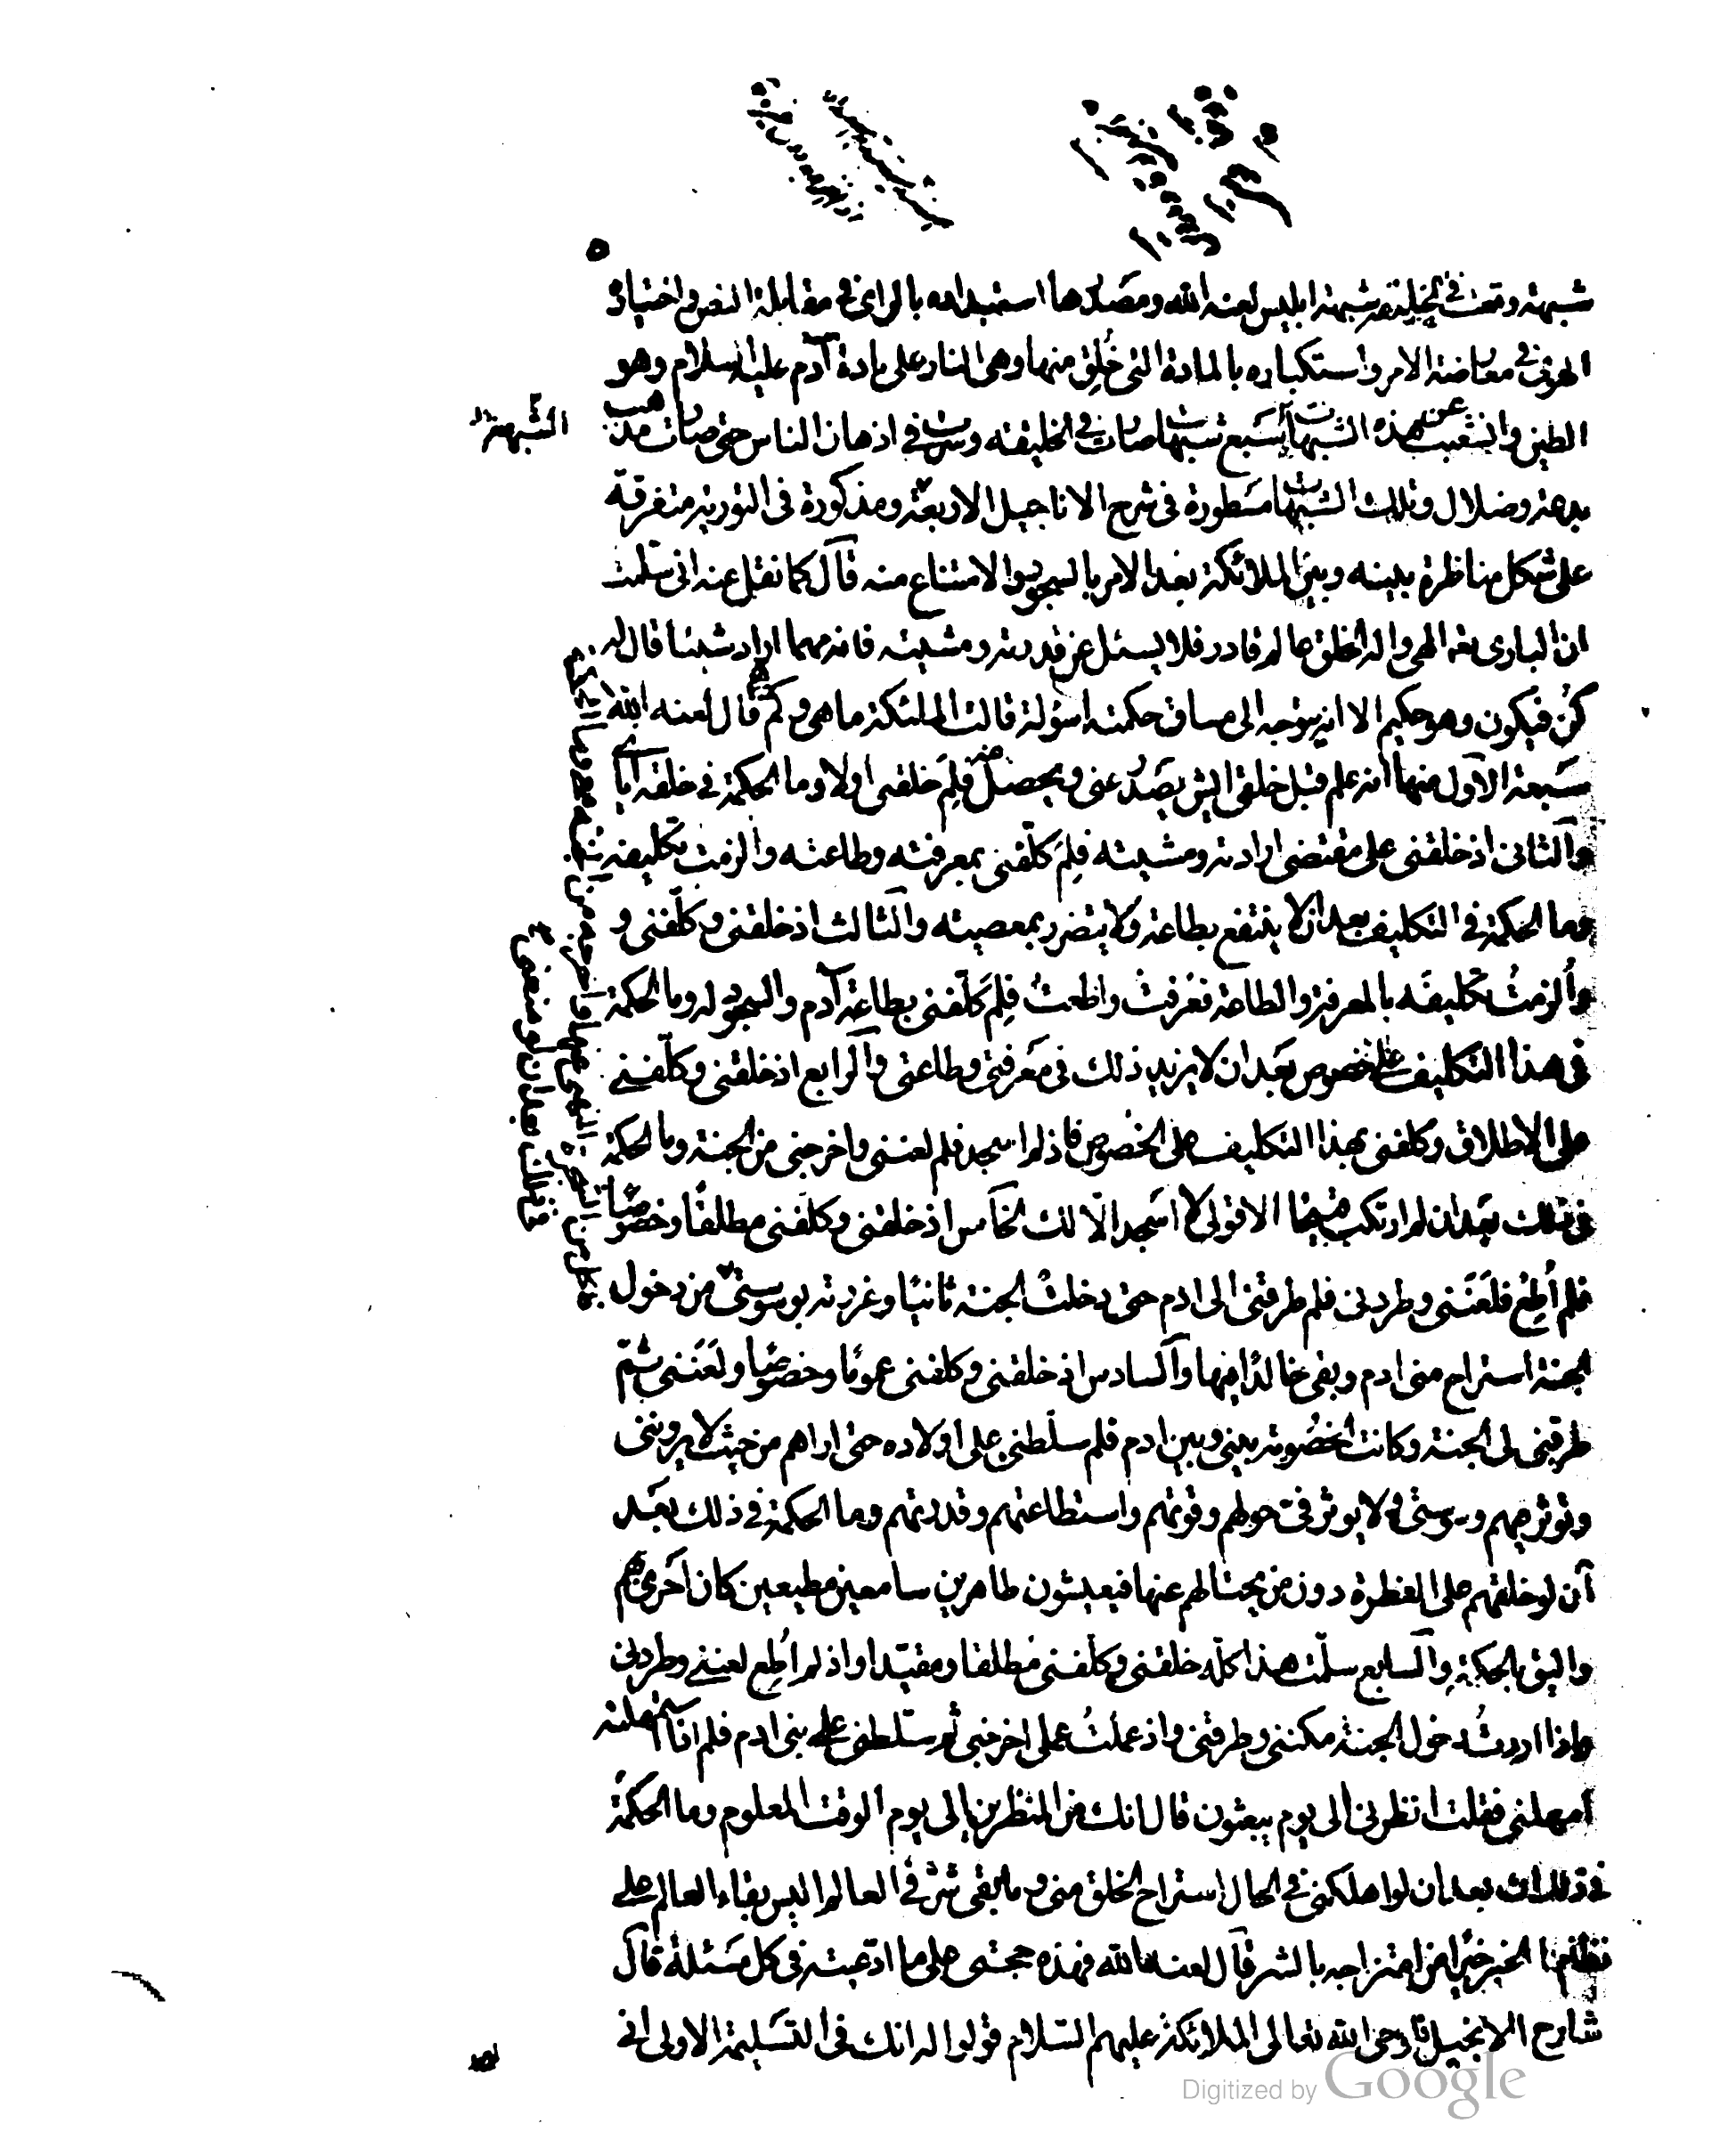 شبهة وقعت في الخليقة شبهة ابليس لعنه الله ومصدرها استبداده بالراى في مقابلة النص واختياره
الهوى في معارضة الامر واستكباره بالمادة التى خُلِق منها وهى النار على مادة آدم عليه السلام وهو
الطين وانشعبت عن هذه الشبهات سَبع شبهات صارت في الخليقته وسرت في اذهان الناس حتى صارت مذهب
الشبهة
بدعة وضلال وتلك الشبهات مسَطورة في شرح الاناجيل الاربعة ومذكورة فى التورية متفرقة
على شكل مناظرة بينه وبين الملائكة بعد الامر بالسجود والامتناع منه قال كما نقل عنه انى سلّمت
ان البارى تعه الهى واله الخلق عالم قادر فلا يسئل عن قدرته ومشيته فانه مهما اراد شيئا قال له
كُن فيكون وهو حكيم الا انه يتوجه الى مساق حكمته اسؤلة قالت الملئكة ما هى وكم قال لعنه الله
سَبعة الاول منها انه علم قبل خلقى اليش يصَدُر عنى ويحصل منى فلِمَ خلقنى اولا وما الحكمة في خلقه اياى
والثانى اذ خلقنى على مقتضى ارادته ومشيته فلِمَ كلّفنى بمعرفته وطاعته والزمت تكليفه
وما الحكمة في التكليف بعد ان لا ينتفع بطاعة ولا يتضرر بمعصيته والثالث اذ خلقنى وكلّفنى و
وألزمتُ تكليفَه بالمعرفة والطاعة فعَرفتُ واطعتُ فلِمَ كلّفنى بطاعة آدم والسجود له وما الحكمة
فى هذا التكليف على الخصوص بعَد ان لا يزيد ذلك فى مَعرفتى وطاعتى والرابع اذ خلقنى وكلّفنى
على الاطلاق وكلفنى بهذا التكليف على الخصوص فاذ لم اسجد فلم لعننى واخرجنى من الجنة وما الحكمة
فى ذلك بعَد ان لم ارتكب قبيحا الا قولى لا اسَجد الّا لك الخامس اذ خلقنى وكلّفنى مطلقًا وخصوصًا
فلم أُطِعُ فلعَنَنى وطردنى فلم طرقنى الى ادم حتى دخلتُ الجنة ثانيًا وغررته بوسوستى من دخول
الجنة استراح منى ادم وبقى خالدًا فيها والسادس اذ خلقنى وكلفنى عمومًا وخصوصًا ولعَنَنى ثم
طرقنى الى الجنة وكانت الخصُومة بينى وبين ادم فلم سلّطنى على اولاده حتى اراهم من حيث لا يروننى
وتوثر فيهم وسوستى ولا يوثر فىّ حولهم وقوتهم واستطاعتهم وقدرتهم وما الحكمة في ذلك بعَد
أن لو خلقهم على الفطرة دون من يحتالهم عنها فيعيشون طاهرين سامعين مطيعين كان احَرى بهم
واليق بالحكمة والسابع سلّمت هذا كلّه خلقنى وكلّفنى مُطلقا ومقيّدا واذ لم اُطِع لعننى وطردنى
واذا اردتُ دخول الجنة مكننى وطرقنى واذ عملتُ عملى اخرجنى ثم سَلّطنى على بنى ادم فلم اذا استمهلته
امهلنى فقلت انظرنى الى يوم يبعثون قال انك من المنظرين الى يوم الوقت المعلوم وما الحكمة
فى ذلك بعد ان لو اهلكنى في الحال استراح الخلق منى وما بقى شرّ في العالم اليس بقاء العالم على
نظام الخير خيرًا من امتزاجه بالشر قال لعنه الله فهذه حجتى على ما ادّعيته في كل مسَئلة قال
شارح الانجيل فاوحى الله تعالى الى الملائكة عليهم السّلام قولوا له انك فى التسَليمة الاولى انى
Digitized by Google